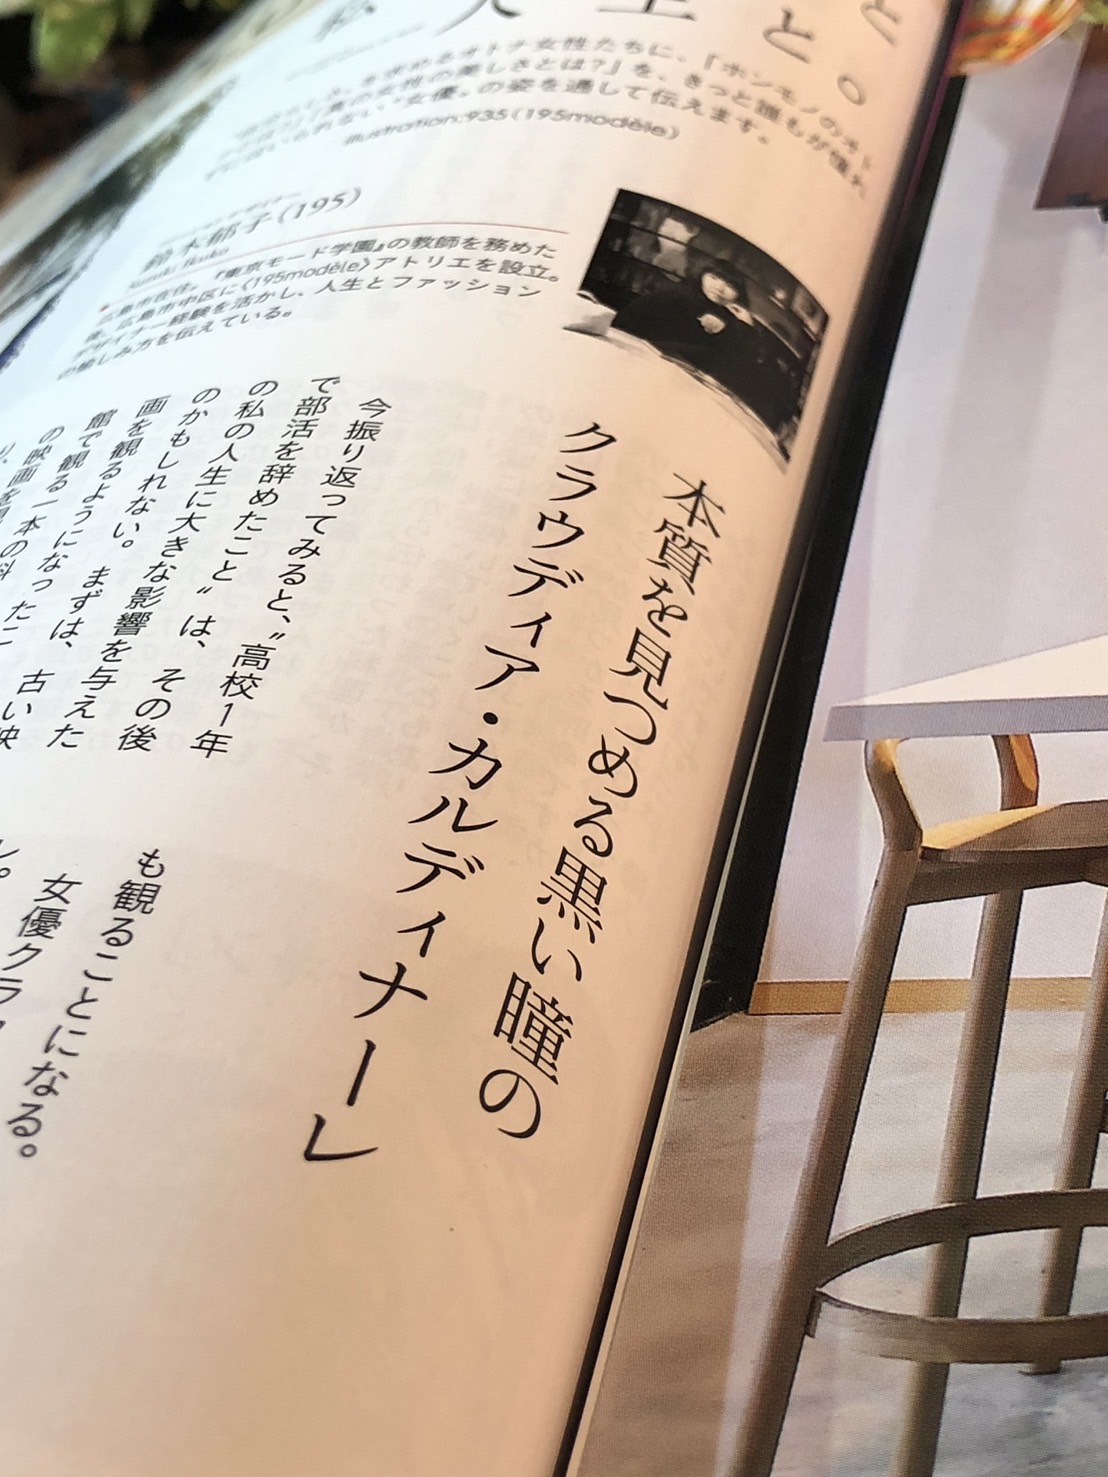 と。
人生と。
を求めるオトナ女性たちに、「ホンモノのオト
「真の女性の美しさとは?」を、きっと誰もが憧れ
いられない"女優"の姿を通して伝えます。
illustration:935(195modèle)
鈴木郁子(195)
Suzuki Ikuko
広島市在住。『東京モード学園』の教師を務めた
後、広島市中区に〈195modèle〉アトリエを設立。
デザイナー経験を活かし、人生とファッション
の愉しみ方を伝えている。
本質を見つめる黒い瞳の
クラウディア・カルディナーレ
今振り返ってみると、"高校1年
で部活を辞めたこと"は、その後
の私の人生に大きな影響を与えた
のかもしれない。まずは、古い映
画を観るようになったこ
館で観る一本の
の映画を
も観ることになる。
女優クラ